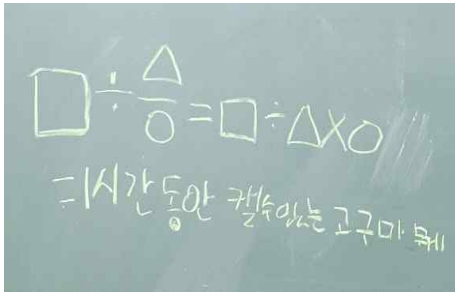 □ ÷ △/○ = □ ÷ △ X ○
=1시간 동안 캘수있는 고구마 무게